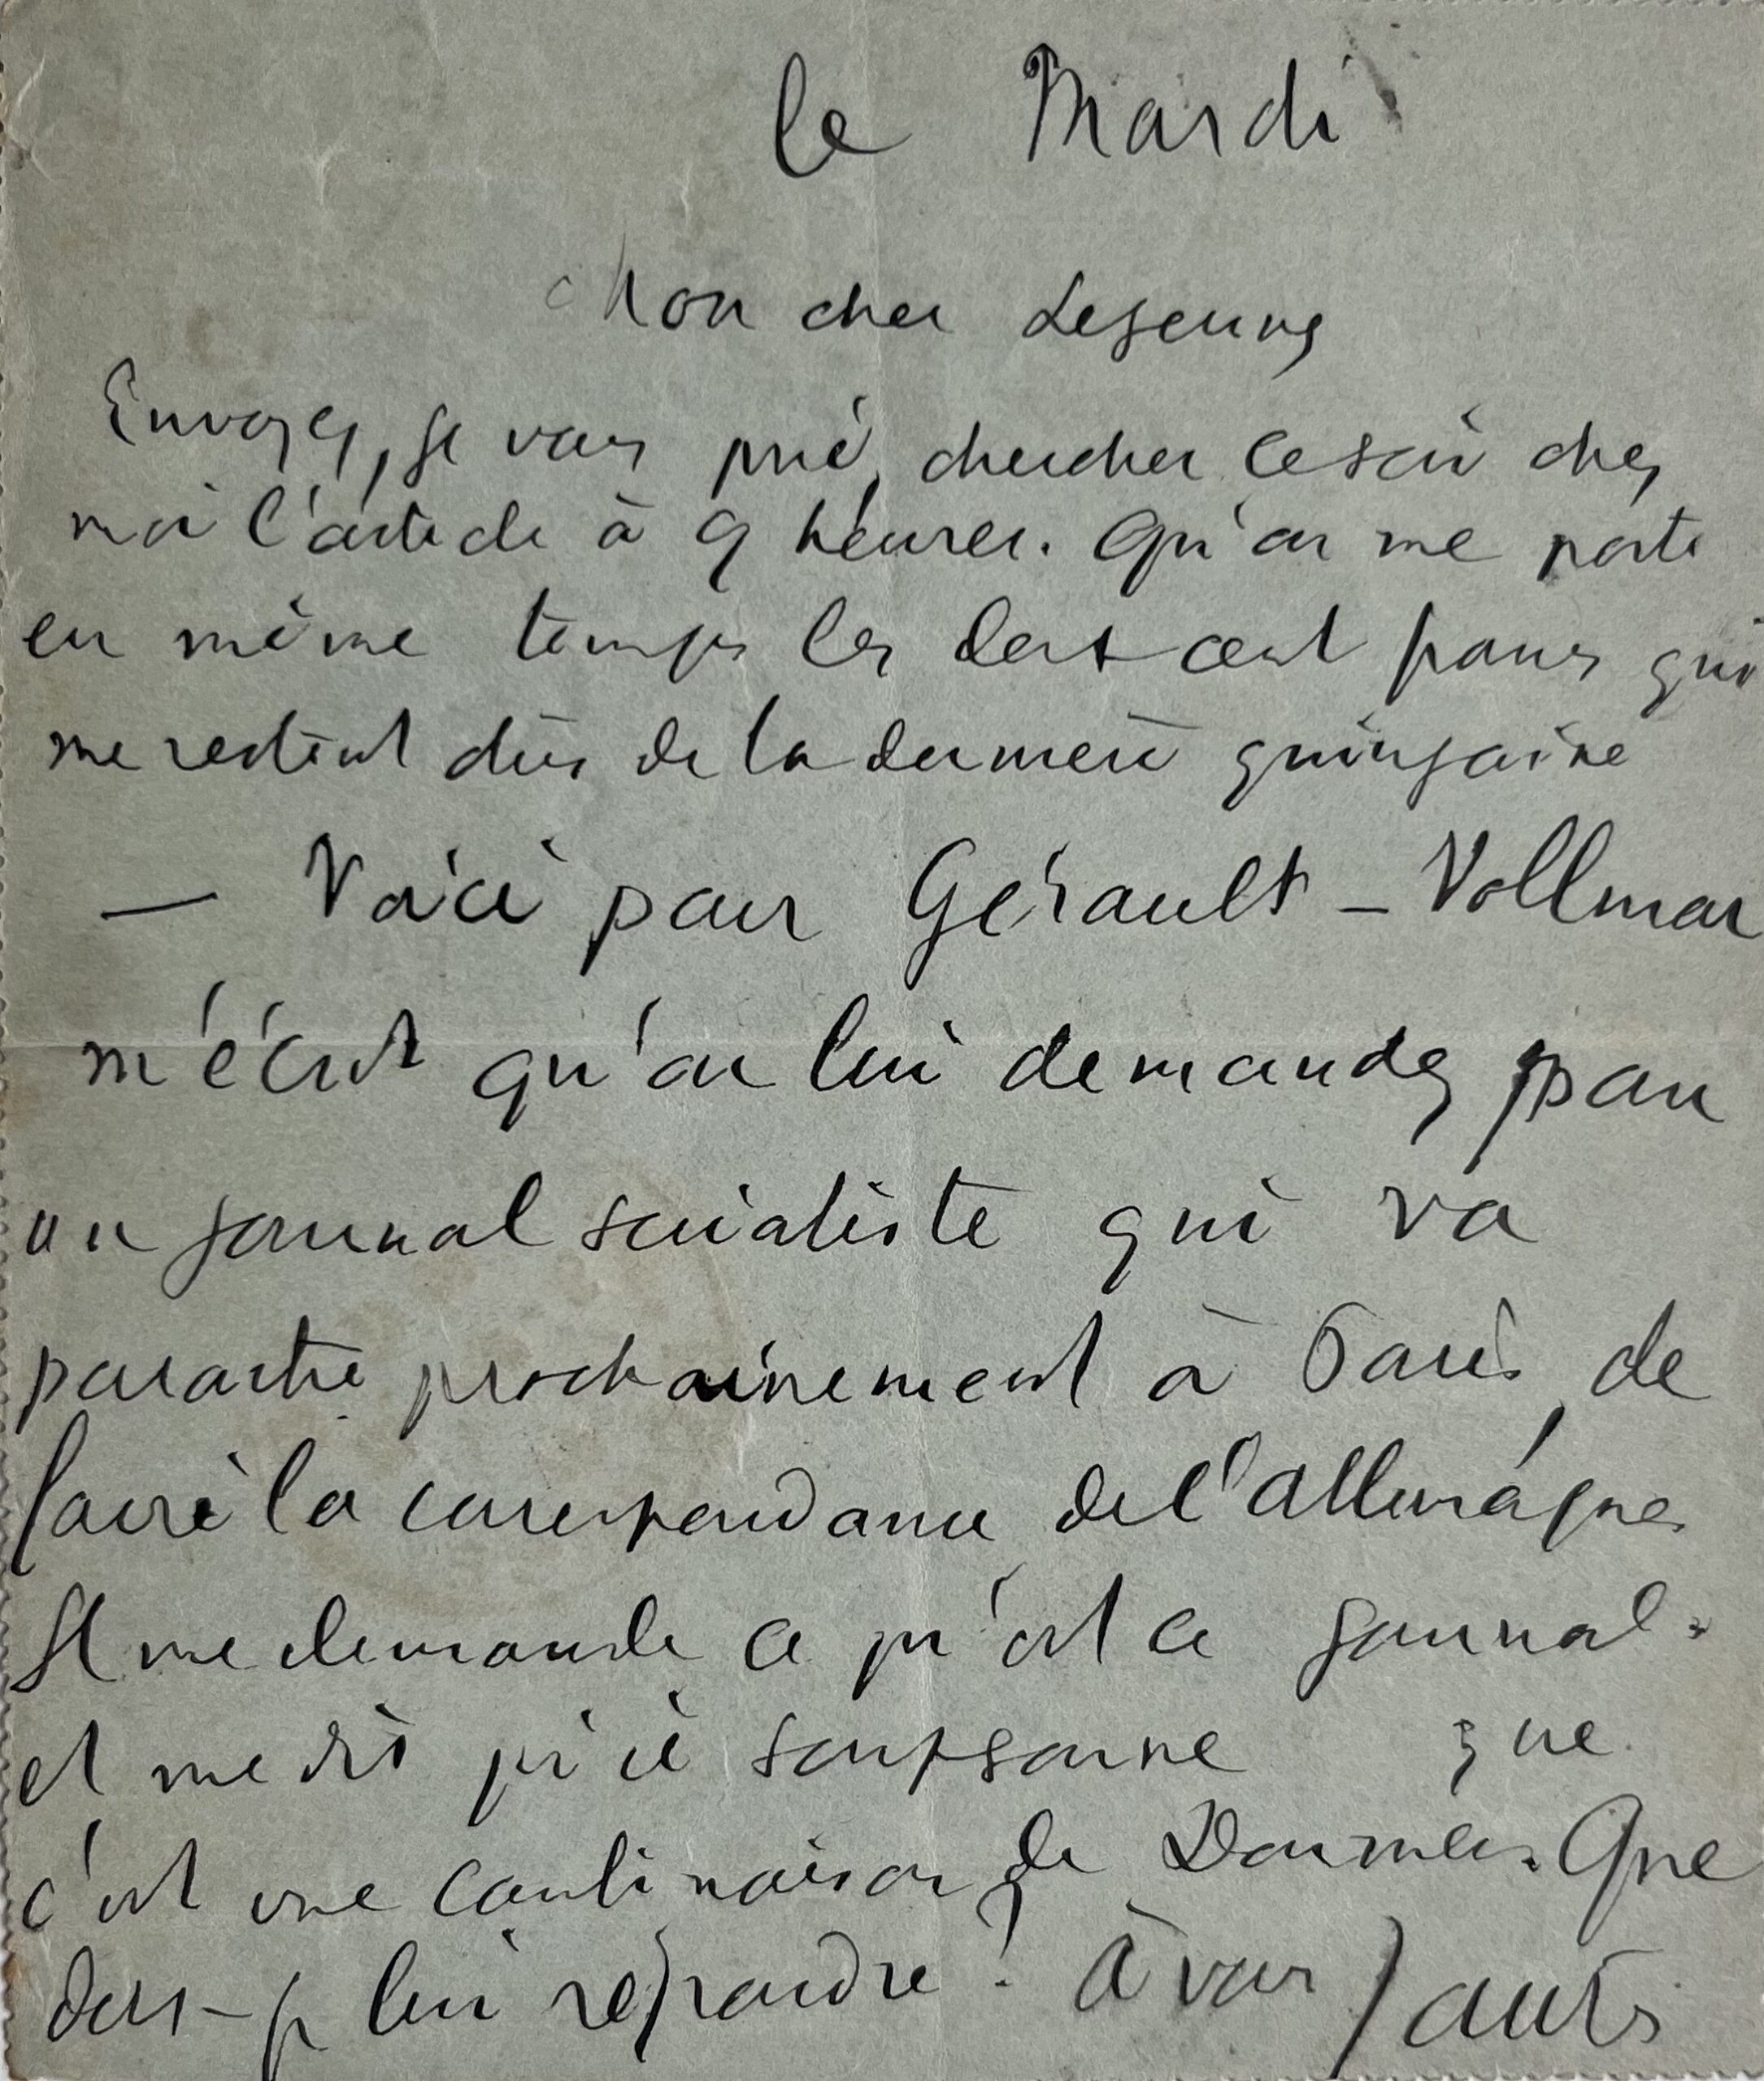 le Mardi
Mon cher Lejeune
Envoyez, je vous prie, chercher ce soir chez
moi l'article à 9 heures. Qu'on me porte
en même temps les cent francs qui
me restent dûs de la dernière quinzaine
— Voici pour Gérault – Vollmar
m'écrit qu'on lui demande, pour
un journal socialiste qui va
paraitre prochainement à Paris, de
faire la correspondance de l'Allemagne.
Il me demande ce qu'est ce journal
et me dit qu'il soupçonne que
c'est une combinaison de Doumer. Que
dois-je lui répondre? à vous Jaurès